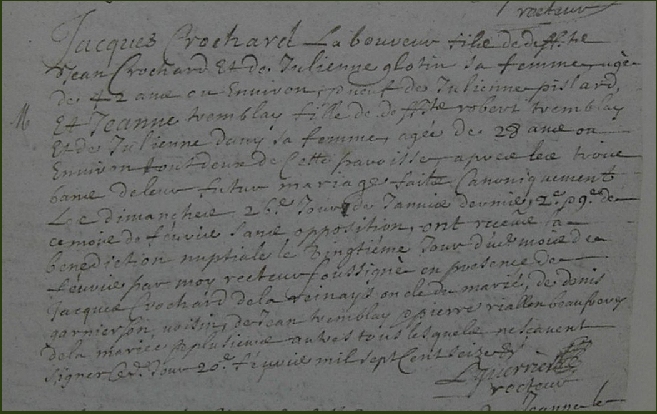 recteur
Jacques Crochard Laboureur filz de deffte
Jean Crochard Et de Julienne glotin sa femme agé
de 42 ans ou Environ veuf de Julienne pislard
Et Jeanne tremblay fille de deffte robert tremblay
Et de Julienne dany sa femme, agée de 28 ans ou
Environ tout deux de Cette paroisse, apres les trois
bans de leur futur mariage faits Canoniquement
Le dimanche 26e Jour de Janvier dernier, 2e
ce mois de fevrier sans opposition, ont receue la
benediction nuptiale le Vingtiéme Jour dudt mois de
feuvrier par moy recteur soussigné en presence de
Jacques Crochard de la reinays oncle du marié, de denis
garnierson voisin, de Jean tremblay pierre riallen beaupere
de la mariée, plusieurs autres tous lesquels ne scavent
signer Ced. Jour 20e fevrier mil sept Cent seize
recteur
Jeanne le